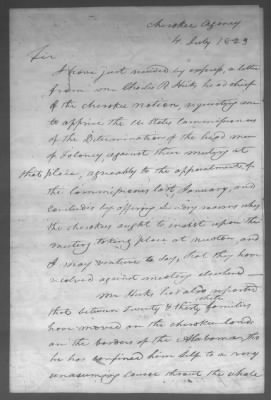 Cherokee Agency
4 July 1823
Sir
I have just received by express, a letter
from Mr Charles R Hicks head chief
of the Cherokee nation, requesting me
to apprise the U States Commissioners
of the Determination of the head men
of against their meeting at
that place, agreeably to the appointment of
the Commissioners last January, and
concludes by offering Sundry reasons why
the Cherokees ought to insist upon the
meeting taking place at Newton, and
I may venture to say, that they have
resolved against meeting elsewhere —
Mr Hicks has also reported
that between Twenty & thirty families
have moved on the Cherokee lands
on the borders of the Alabama, tho
he has confined him self to a very
unassuming course throut the whole